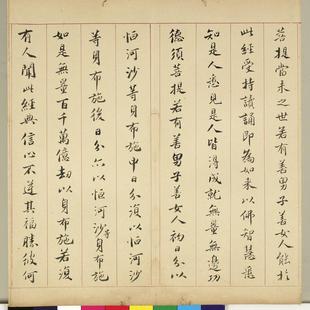 菩提當来之世若有善男子善女人能於
此經受持讀誦即為如来以佛智慧悉
知是人悉見是人皆得成就無量無邊功
德須菩提若有善男子善女人初日分以
恒河沙等身布施中日分復以恒河沙
等身布施後日分亦以恒河沙等身布施
如是無量百千萬億劫以身布施若復
有人聞此經典信心不逆其福勝彼何